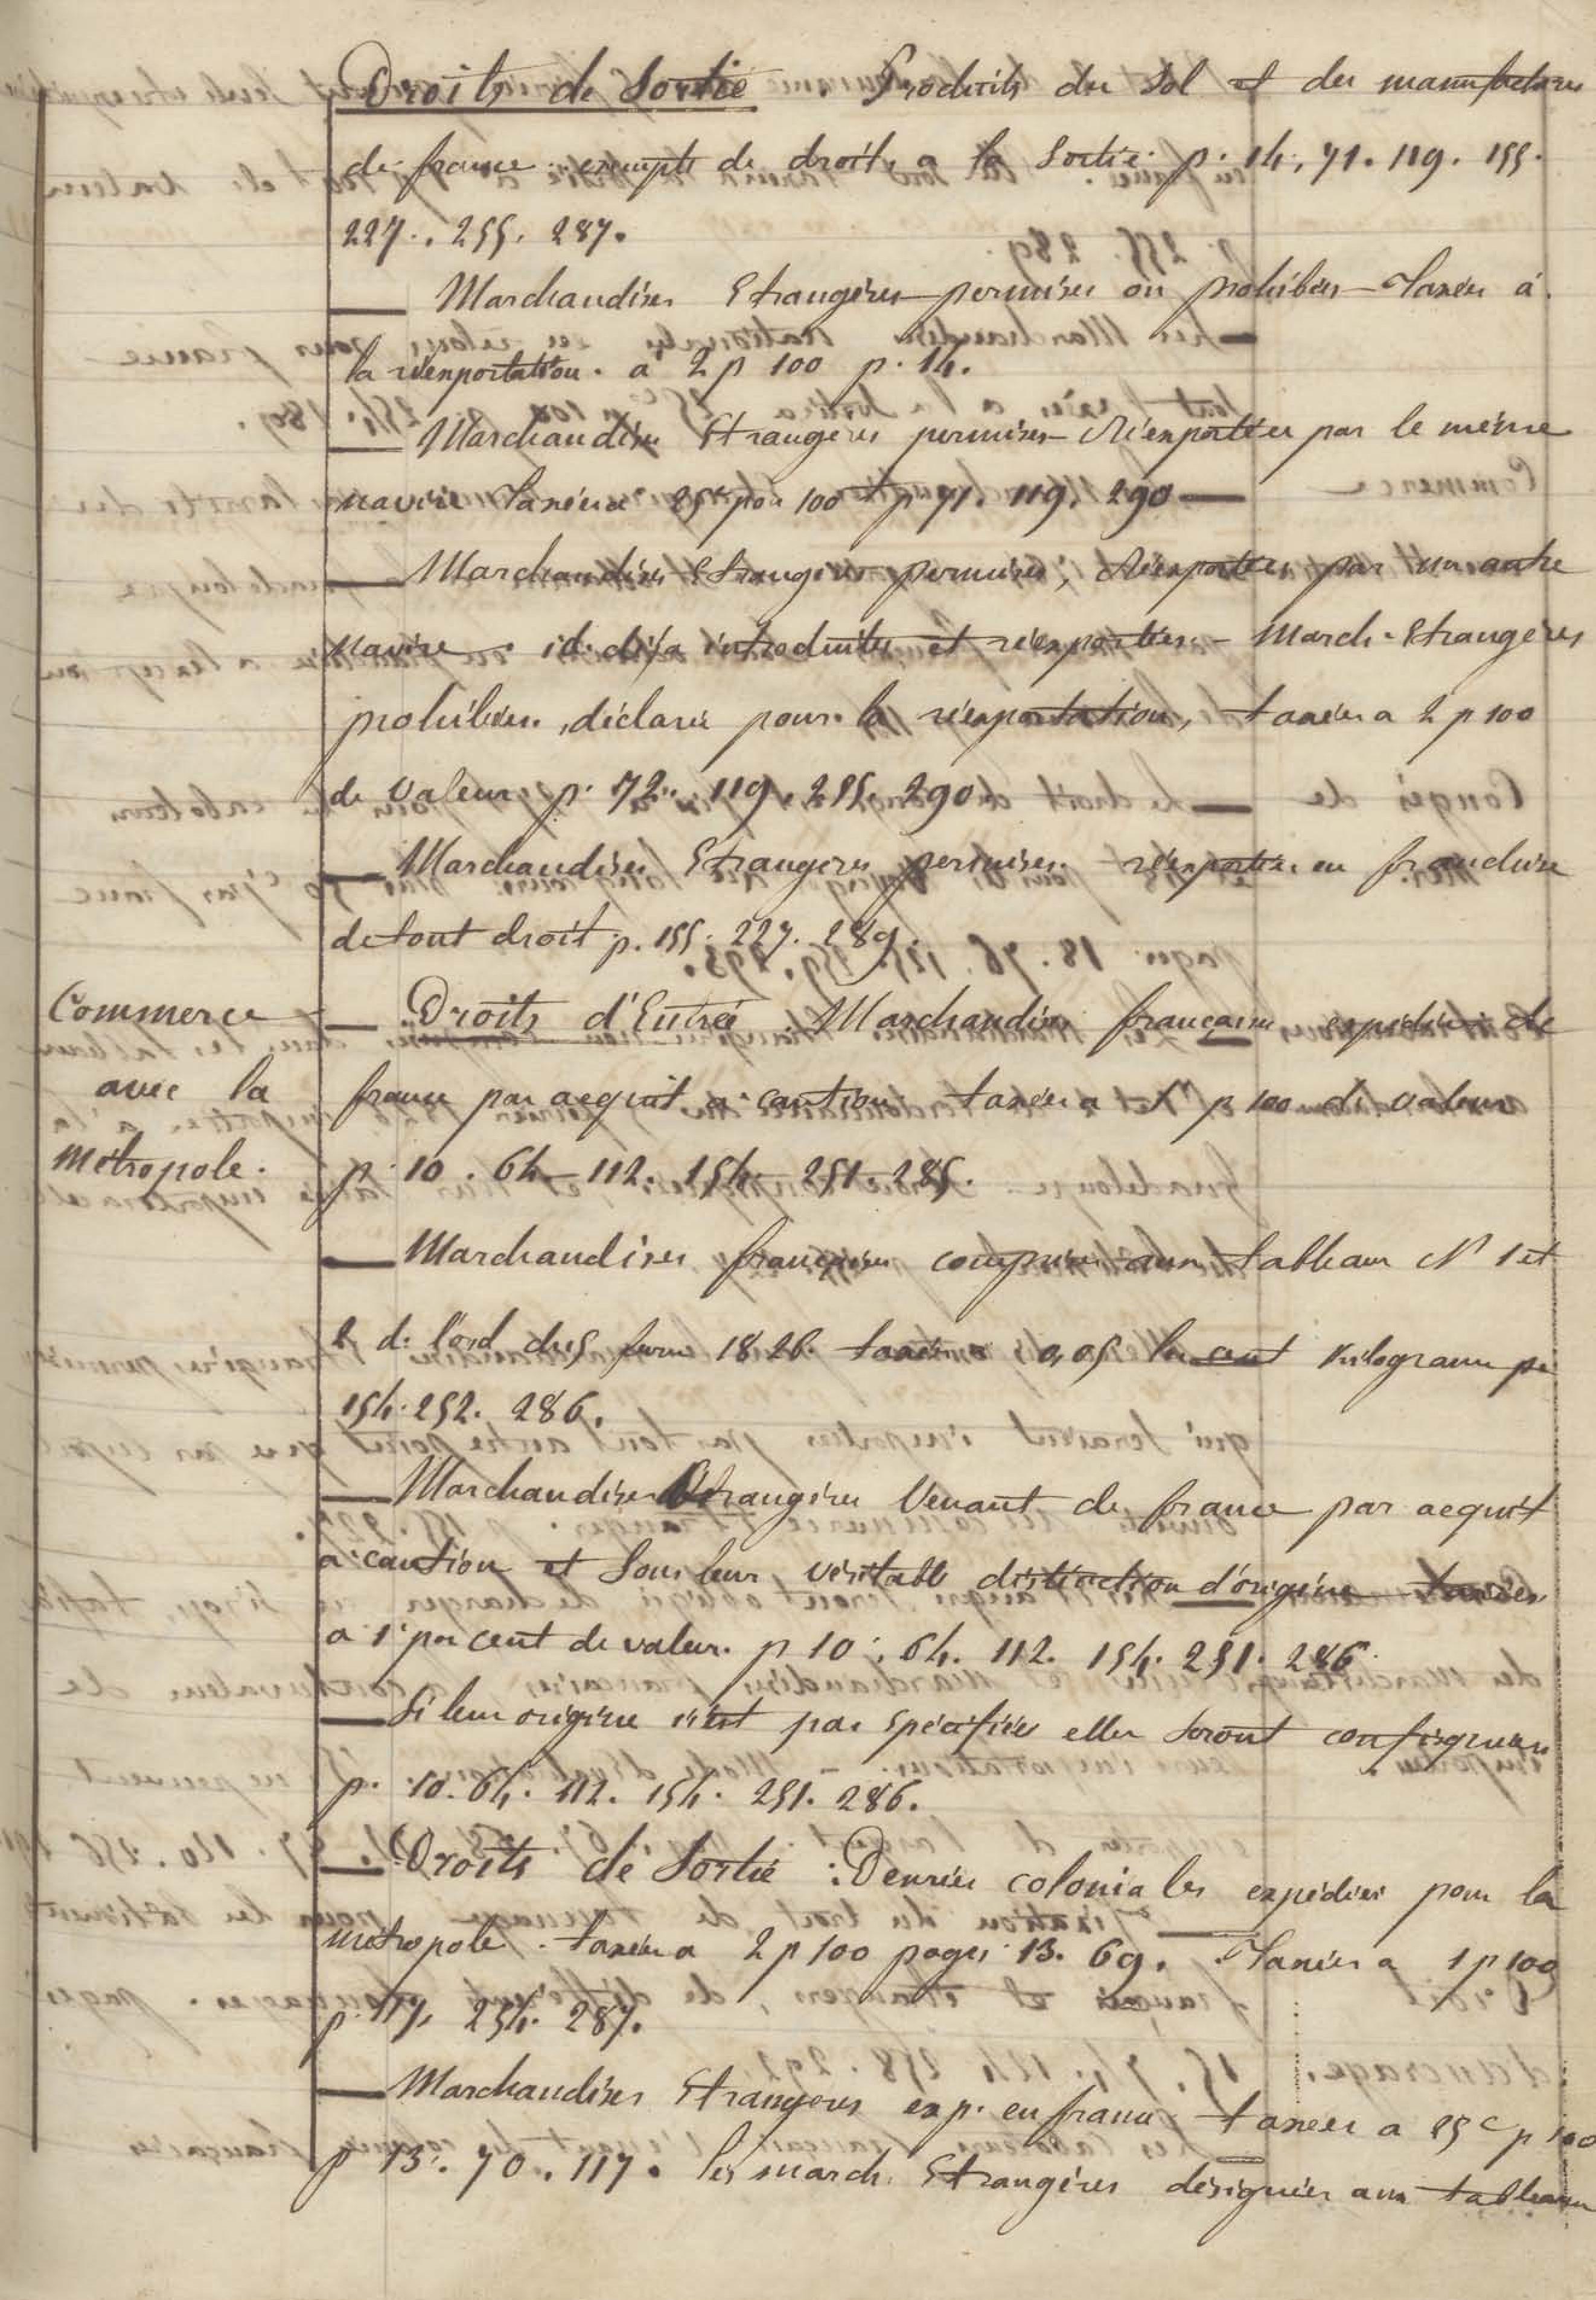 Droits de Sortie Produits du Sol et des manufactures
de france exempts de droits a la Sortie p. 14. 71. 119. 155.
227. 255. 287.
— Marchandises Etrangères permises ou prohibées — Taxées à
la réexportation. a 2 p 100 p. 14.
— Marchandises Etrangères permises — Réexportées par le même
navire Taxées a 25c pour 100 p 71. 119. 290 —
— Marchandises Etrangères permises, Réexportées par un autre
navire — id. déja introduites et réexportées. — March. Etrangères
prohibées. déclarées pour la réexportation, taxées a 2 p 100
de Valeur p. 72. 119. 255. 290
— Marchandises Etrangères permises. réexportées en franchise
de tout droit p. 155. 227. 289.
Commerce
avec la
métropole.
— Droits d'Entrée. Marchandises françaises expédiées de
france par acquit a caution taxées a 5 p 100 de valeur
p. 10. 64. 112. 154. 251. 285.
— Marchandises françaises comprises aux tableaux N° 1 et
2 de l'ord du 5 fevrier 1826. taxées a 0,05 les cent kilogrammes p
154. 252. 286.
— Marchandises Etrangères Venant de france par acquit
a caution et Sous leur véritable distinction d'origine taxées
a 1 par cent de valeur. p 10. 64. 112. 154. 251. 286.
— Si leur origine n'est pas spécifiée elles seront confisquées
p. 10. 64. 112. 154. 251. 286.
— Droits de Sortie : Denrées coloniales expédiées pour la
métropole. taxées a 2 p 100 pages 13. 69. Taxées a 1 p 100
p. 117. 254. 287.
— Marchandises Etrangères exp. en france taxées a 25 c p 100
p 13. 70. 117. les march. Etrangères désignées aux tableaux